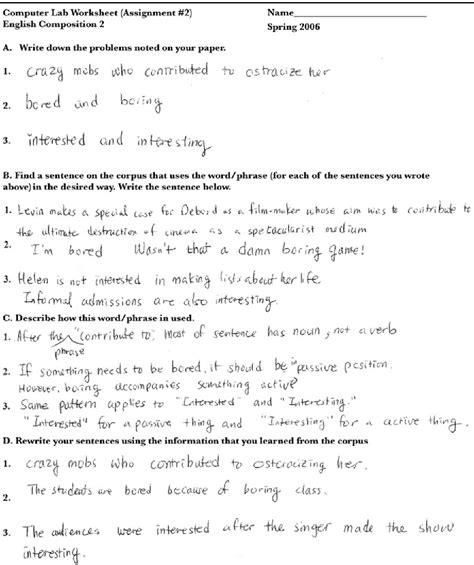 Computer Lab Worksheet (Assignment #2) Name
English Composition 2 Spring 2006
A. Write down the problems noted on your paper.
1. crazy mobs who contributed to ostracize her
2. bored and boring
3. interested and interesting
B. Find a sentence on the corpus that uses the word/phrase (for each of the sentences you wrote
above) in the desired way. Write the sentence below.
1. Levin makes a special case for Debord as a film-maker whose aim was to contribute to
the ultimate destruction of cinema as a spectacularist medium
2. I'm bored Wasn't that a damn boring game!
3. Helen is not interested in making lists about her life.
Informal admissions are also interesting.
C. Describe how this word/phrase in used.
1. After the phrase "contribute to", most of sentence has noun, not a verb
2. If something needs to be bored, it should be "passive position.
However, boring accompanies something active
3. Same pattern applies to "Interested" and "Interesting."
"Interested" for a passive thing and "Interesting" for a active thing.
D. Rewrite your sentences using the information that you learned from the corpus
1. crazy mobs who contributed to osteracizing her.
2. The students are bored because of boring class.
3. The audiences were interested after the singer made the show
interesting.